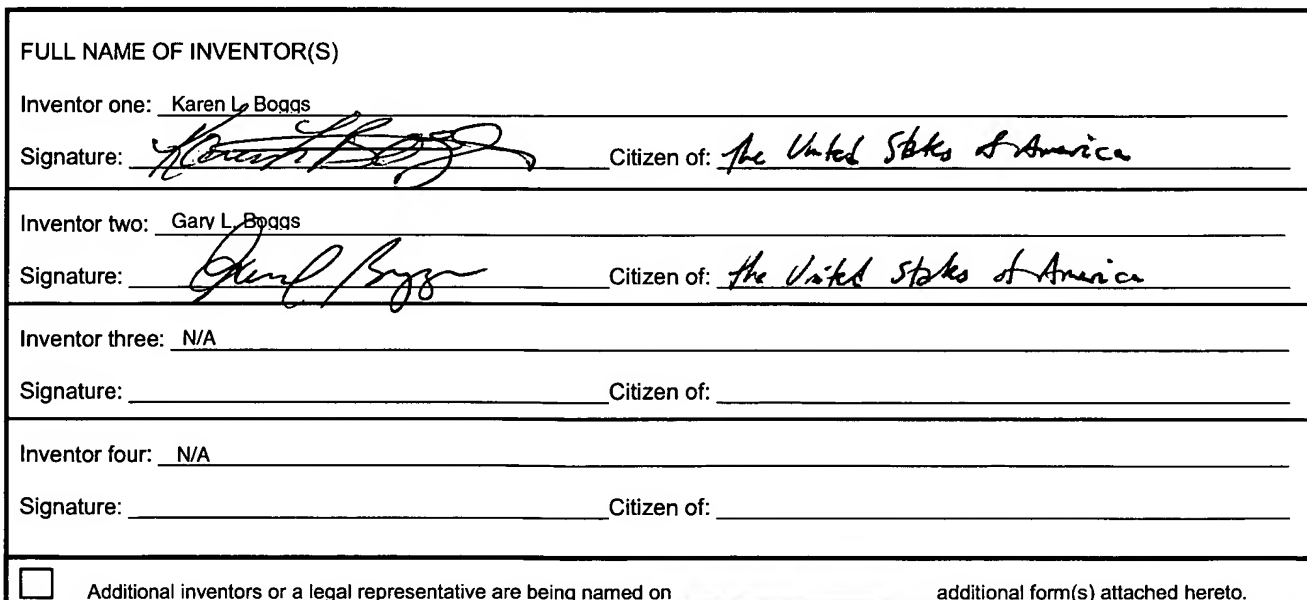 FULL NAME OF INVENTOR(S)
Inventor one: Karen L. Boggs
Signature: Karen L Boggs Citizen of: the United States of America
Inventor two: Gary L. Boggs
Signature: Citizen of: the United States of America
Inventor three: N/A
Signature: Citizen of:
Inventor four: N/A
Signature: Citizen of:
Additional inventors or a legal representative are being named on additional form(s) attached hereto.